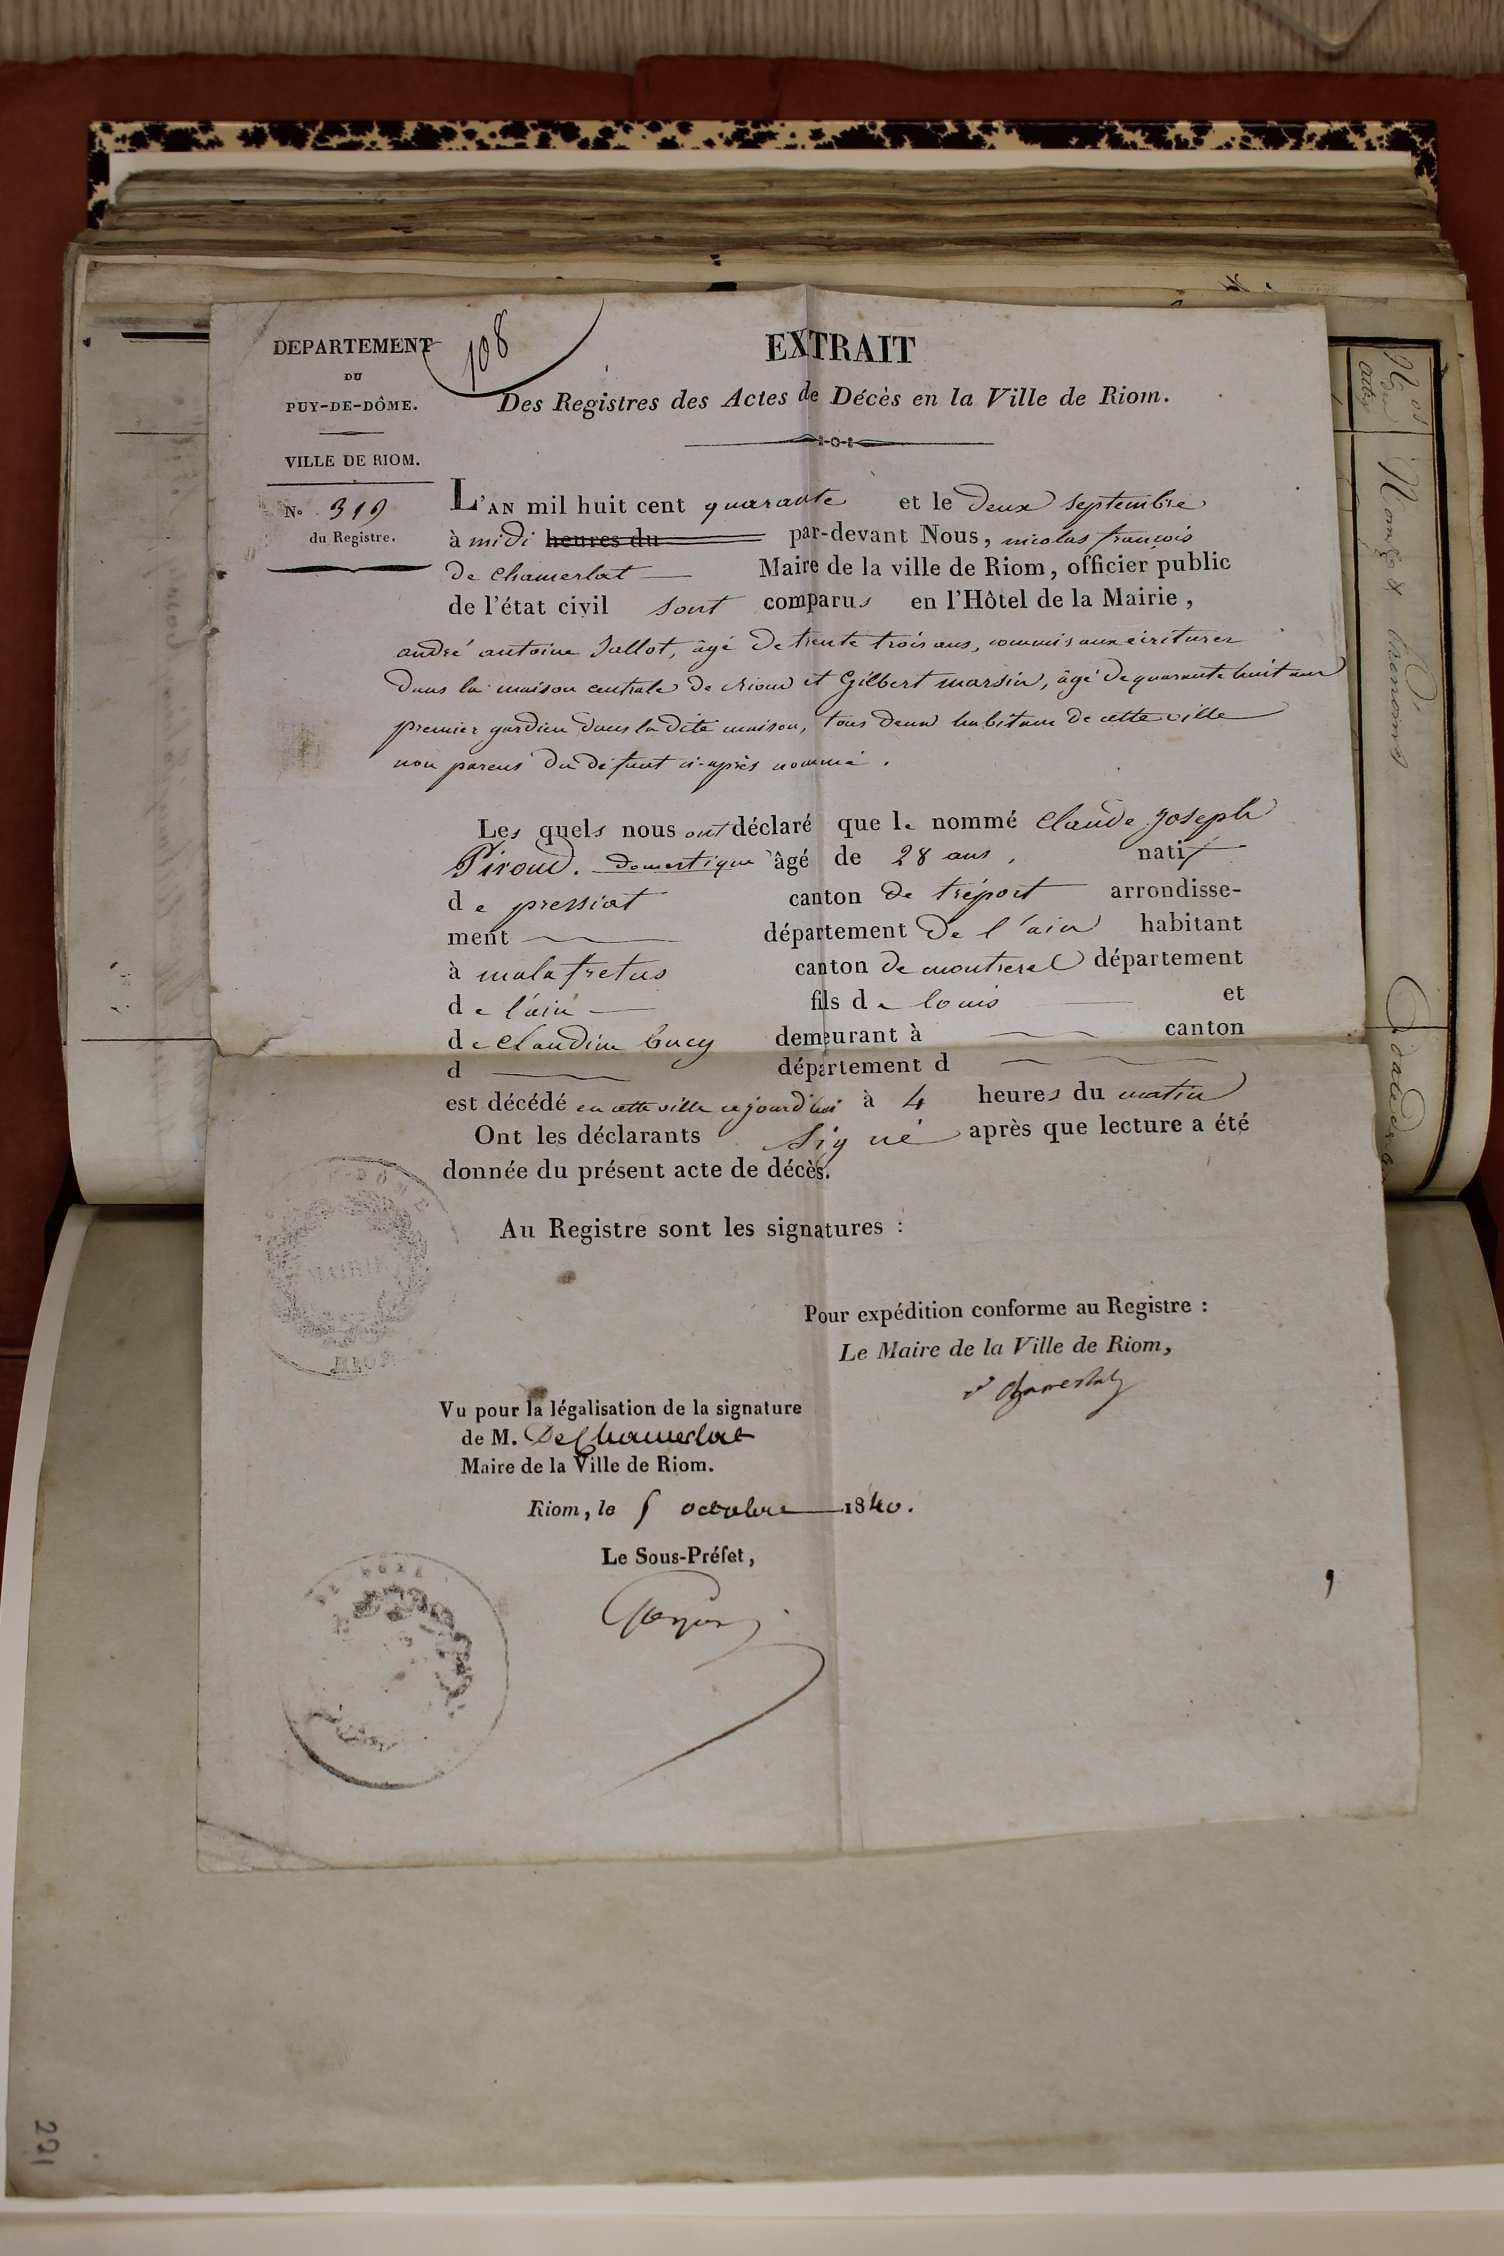 DEPARTEMENT
DU
PUY-DE-DÔME.
VILLE DE RIOM.
N° 319
du Registre.
108
EXTRAIT
Des Registres des Actes de Décès en la Ville de Riom.
L'AN mil huit cent quarante et le deux septembre
à midi heures du par-devant Nous, nicolas françois
de Chamerlat Maire de la ville de Riom, officier public
de l'état civil sont comparus en l'Hôtel de la Mairie,
andré antoine Jallot, âgé de trente trois ans, commis aux écritures
dans la maison centrale de Riom et Gilbert marsin, âgé de quarante huit ans
premier gardien dans la dite maison, tous deux habitans de cette ville
non parens du défunt ci-après nommé.
Les quels nous ont déclaré que le nommé Claude Joseph
Piroud. domestique âgé de 28 ans, natif
de pressiat canton de tréport arrondisse-
ment département de l'ain habitant
à malafretas canton de montrevel département
de l'ain fils de louis et
de Claudine bucy demeurant à canton
d département d
est décédé en cette ville ce jourd'hui à 4 heures du matin
Ont les déclarants signé après que lecture a été
donnée du présent acte de décès.
Au Registre sont les signatures :
MAIRIE
RIOM
Pour expédition conforme au Registre :
Le Maire de la Ville de Riom,
d Chamerlat
Vu pour la légalisation de la signature
de M. De Chamerlat
Maire de la Ville de Riom.
Riom, le 5 octobre 1840.
Le Sous-Préfet,
Nos des actes
Noms & Prénoms
221